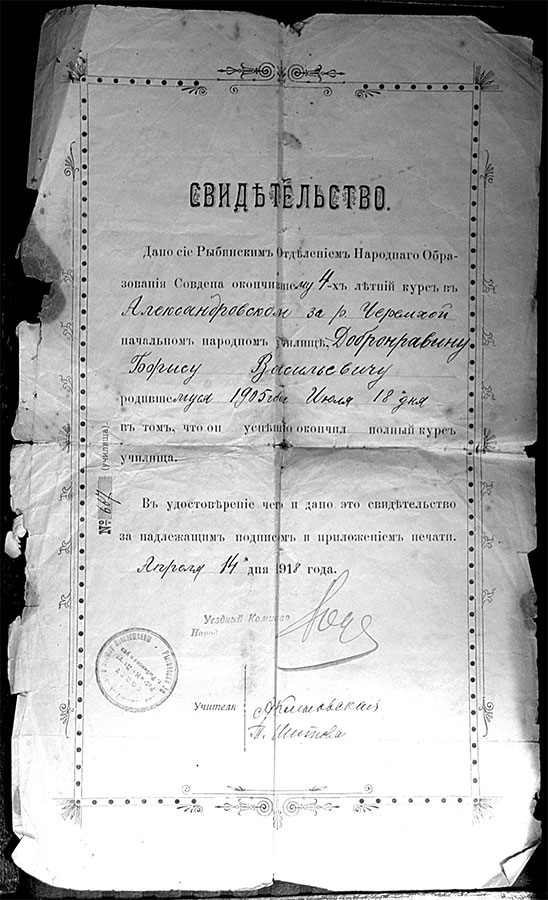 СВИДѢТЕЛЬСТВО.
Дано сіе Рыбинскимъ Отдѣленіемъ Народнаго Обра-
зованія Совдепа окончившему 4-хъ лѣтній курсъ въ
Александровском за р. Черемхой
начальномъ народномъ училищѣ, Добронравину
Борису Васильевичу
родившемуся 1905 года Июля 18 дня
въ томъ, что онъ успѣшно окончилъ полный курсъ
училища.
Въ удостовѣреніе чего и дано это свидѣтельство
за надлежащимъ подписомъ и приложеніемъ печати.
Апреля 14 дня 1918 года.
№ 667 (училища)
Уездный Комиссар
Народ
Учителя